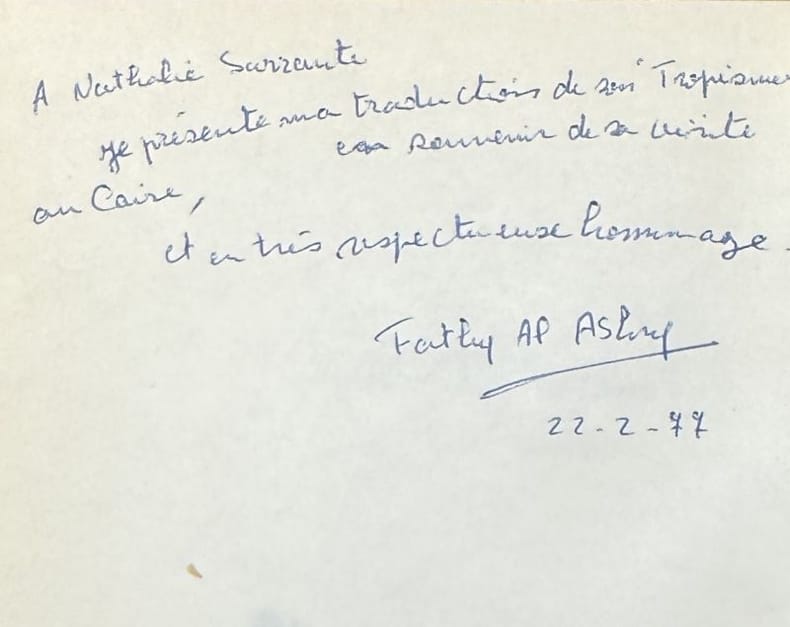 A Nathalie Sarraute
je présente ma traduction de son "Tropismes
en souvenir de sa visite
au Caire,
et en très respectueuse hommage.
Fathy Al Ashry
22-2-77